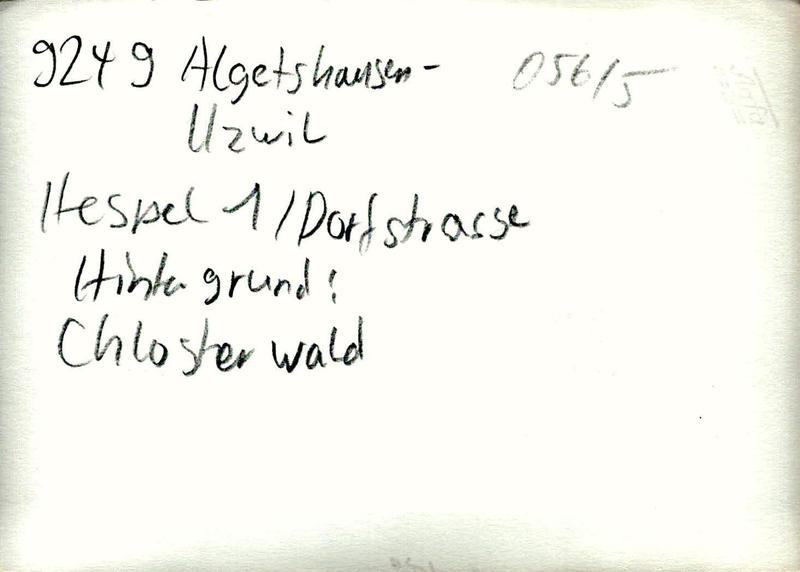 9249 Algetshausen- 056/5
Uzwil
Hespel 1 / Dorfstrasse
Hintergrund:
Chlosterwald